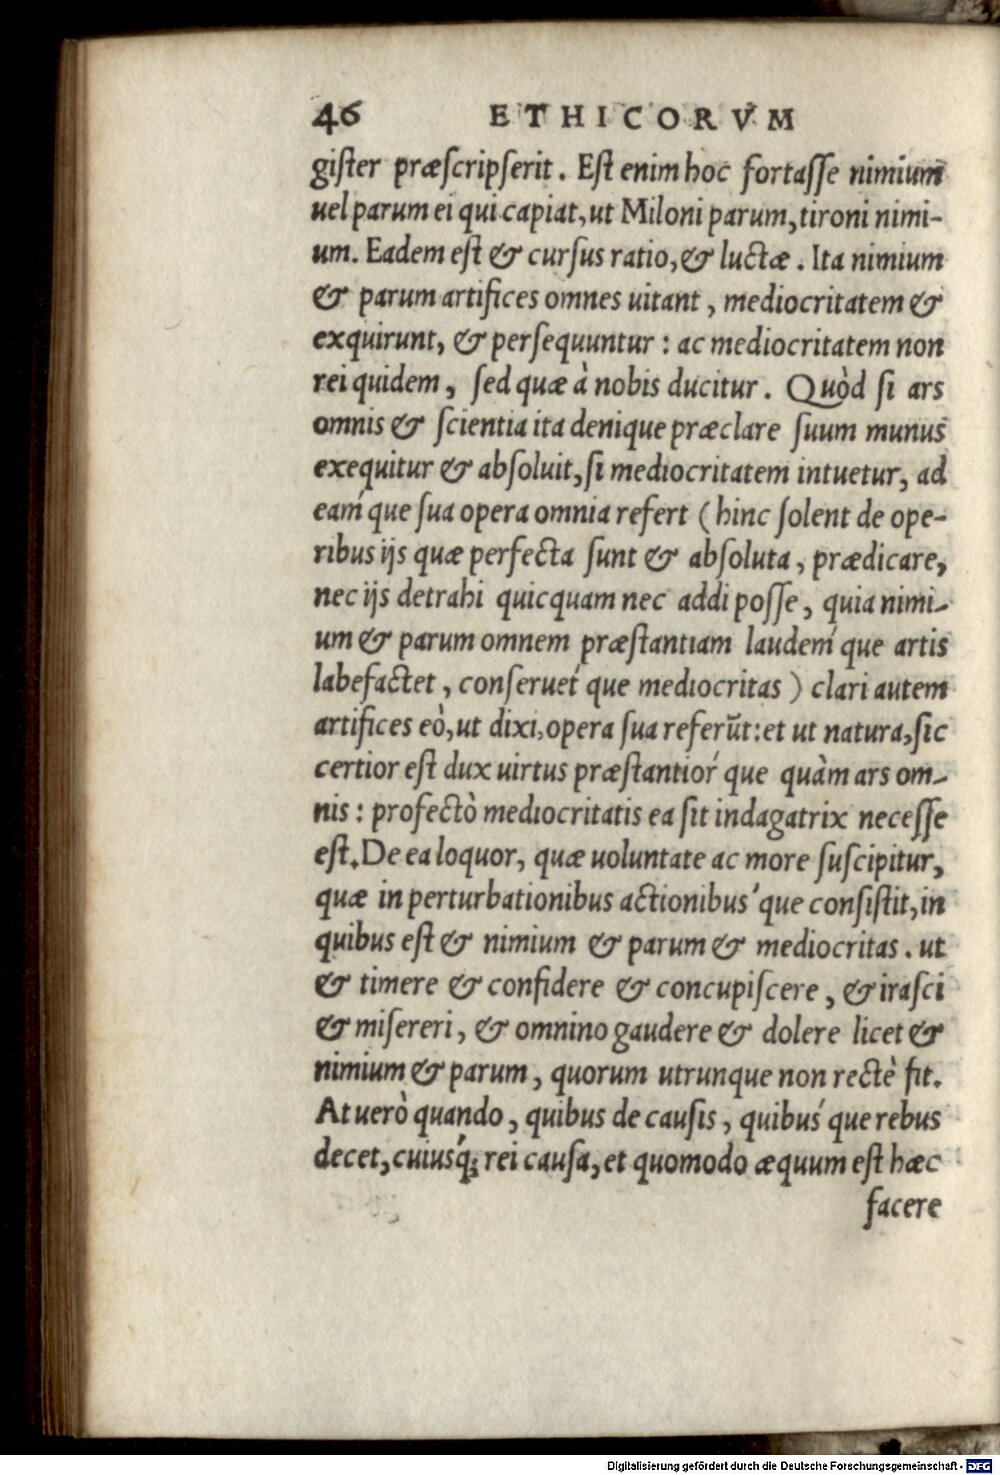 46 ETHICORVM
giſter præſcripſerit. Eſt enim hoc fortaſſe nimium
uel parum ei qui capiat, ut Miloni parum, tironi nimi-
um. Eadem eſt & curſus ratio, & luctæ. Ita nimium
& parum artifices omnes uitant, mediocritatem &
exquirunt, & perſequuntur: ac mediocritatem non
rei quidem, ſed quæ à nobis ducitur. Quòd ſi ars
omnis & ſcientia ita denique præclare ſuum munus
exequitur & abſoluit, ſi mediocritatem intuetur, ad
eaḿ que ſua opera omnia refert (hinc ſolent de ope-
ribus ijs quæ perfecta ſunt & abſoluta, prædicare,
nec ijs detrahi quicquam nec addi poſſe, quia nimi-
um & parum omnem præſtantiam laudeḿ que artis
labefactet, conſeruet́ que mediocritas) clari autem
artifices eò, ut dixi, opera ſua referũt: et ut natura, ſic
certior eſt dux uirtus præſtantioŕ que quàm ars om-
nis: profectò mediocritatis ea ſit indagatrix neceſſe
eſt. De ea loquor, quæ uoluntate ac more ſuſcipitur,
quæ in perturbationibus actionibuś que conſiſtit, in
quibus eſt & nimium & parum & mediocritas. ut
& timere & confidere & concupiſcere, & iraſci
& miſereri, & omnino gaudere & dolere licet &
nimium & parum, quorum utrunque non rectè fit.
At uerò quando, quibus de cauſis, quibuś que rebus
decet, cuiusq́; rei cauſa, et quomodo æquum eſt hæc
facere
Digitalisierung gefördert durch die Deutsche Forschungsgemeinschaft - DFG